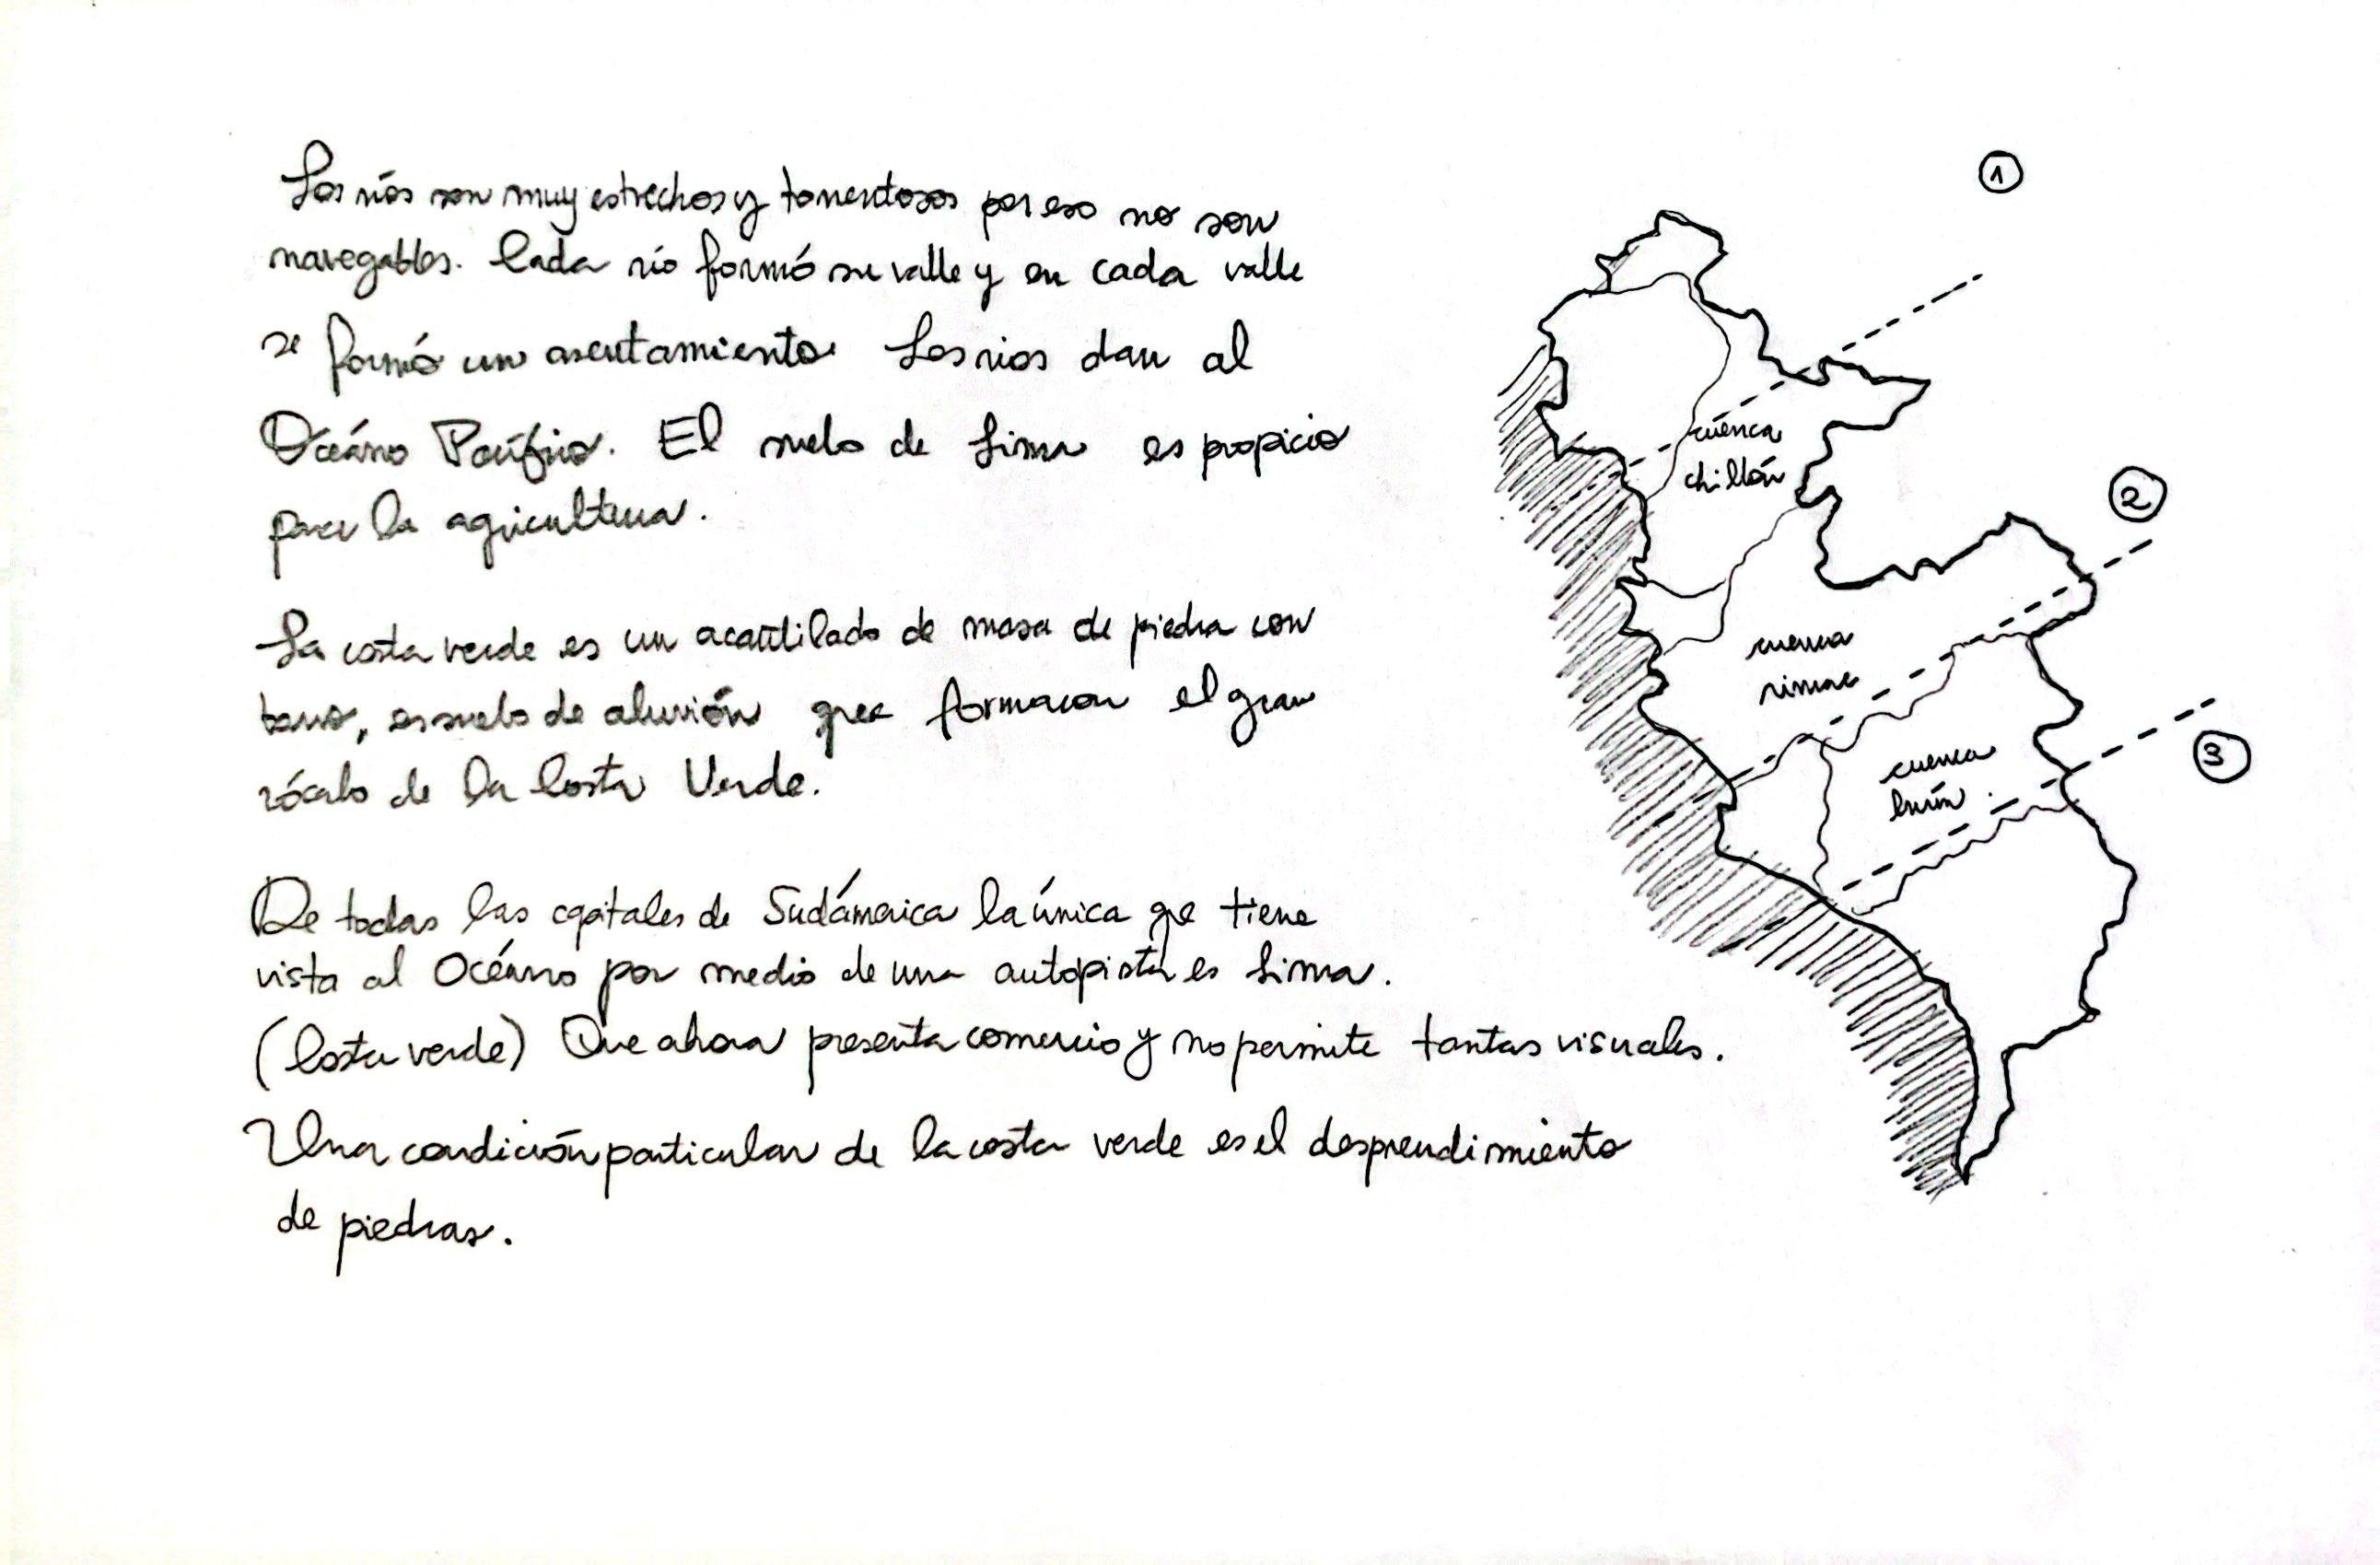 Los ríos son muy estrechos y torrentosos por eso no son
navegables. Cada río formó su valle y en cada valle
se formó un asentamiento Los rios dan al
Océano Pacífico. El suelo de Lima es propicio
para la agricultura.
La costa verde es un acantilado de masa de piedra con
es suelo de aluvión que formaron el gran
zócalo de la Costa Verde.
De todas las capitales de Sudámerica la única qe tiene
vista al Océano por medio de una autopista es Lima.
(Costa verde) Que ahora presenta comercio y no permite tantas visuales.
Una condición particular de la costa verde es el desprendimiento
de piedras.
1
cuenca
chillón
2
cuenca
rimac
cuenca
lurín
3